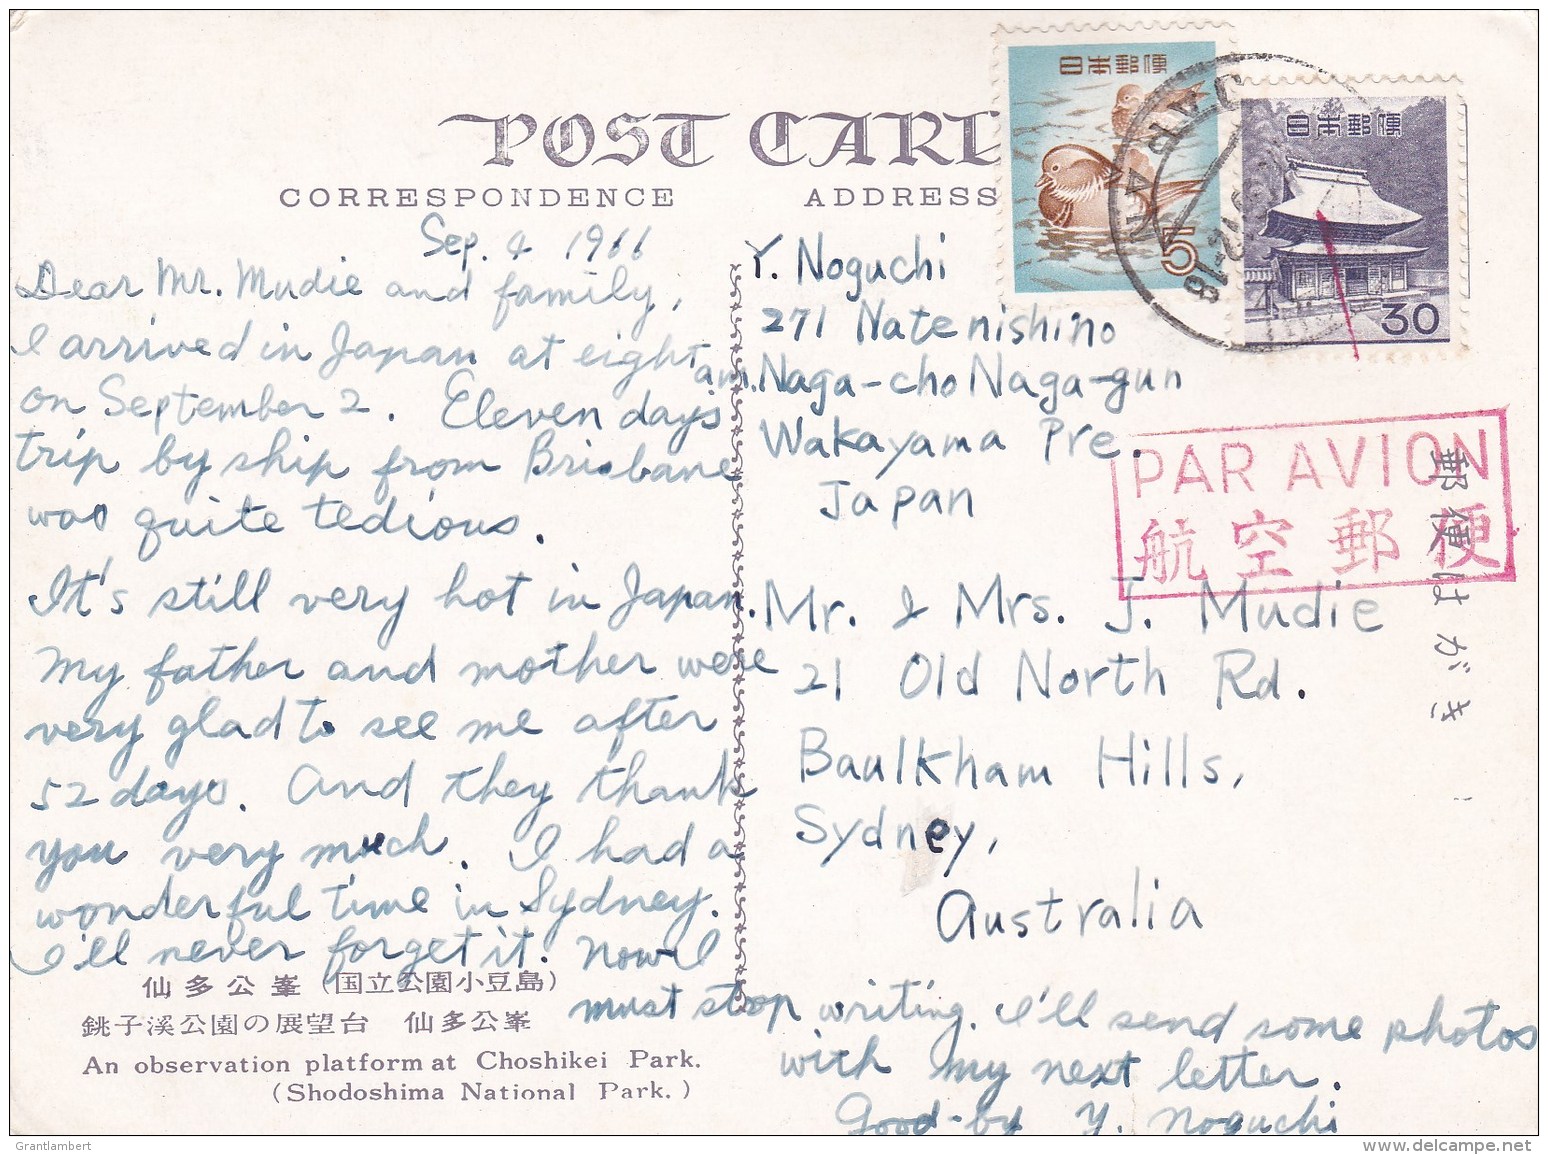 POST CARD
CORRESPONDENCE
ADDRESS
日本郵便
5
日本郵便
30
JAPAN
18
PAR AVION
航空郵便
郵便はがき
Sep. 4 1966
Dear Mr. Mudie and family,
I arrived in Japan at eight am.
on September 2. Eleven days
trip by ship from Brisbane
was quite tedious.
It's still very hot in Japan.
My father and mother were
very glad to see me after
52 days. And they thank
you very much. I had a
wonderful time in Sydney.
I'll never forget it. Now I
must stop writing. I'll send some photos
with my next letter.
Good-by Y. Noguchi
Y. Noguchi
271 Natenishino
Naga-cho Naga-gun
Wakayama Pre.
Japan
Mr. & Mrs. J. Mudie
21 Old North Rd.
Baulkham Hills,
Sydney,
Australia
仙多公峯（国立公園小豆島）
銚子溪公園の展望台　仙多公峯
An observation platform at Choshikei Park.
(Shodoshima National Park.)
Grantlambert
delcampe.net